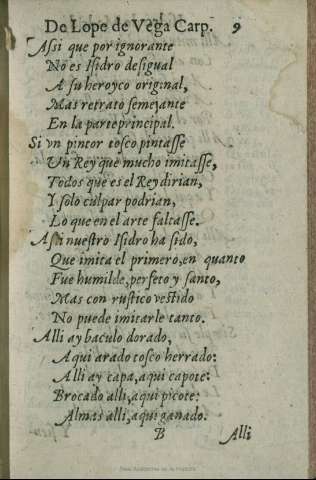 De Lope de Vega Carp. 9
Assi que por ignorante
No es Isidro desigual
A su heroyco original,
Mas retrato semejante
En la parte principal.
Si vn pintor tosco pintasse
Un Rey que mucho imitasse,
Todos que es el Rey dirian,
Y solo culpar podrian,
Lo que en el arte faltasse.
Assi nuestro Isidro ha sido,
Que imita el primero, en quanto
Fue humilde, perfeto y santo,
Mas con rustico vestido
No puede imitarle tanto.
Alli ay baculo dorado,
Aqui arado tosco herrado:
Alli ay capa, aqui capote:
Brocado alli, aqui picote:
Almas alli, aqui ganado.
B Alli